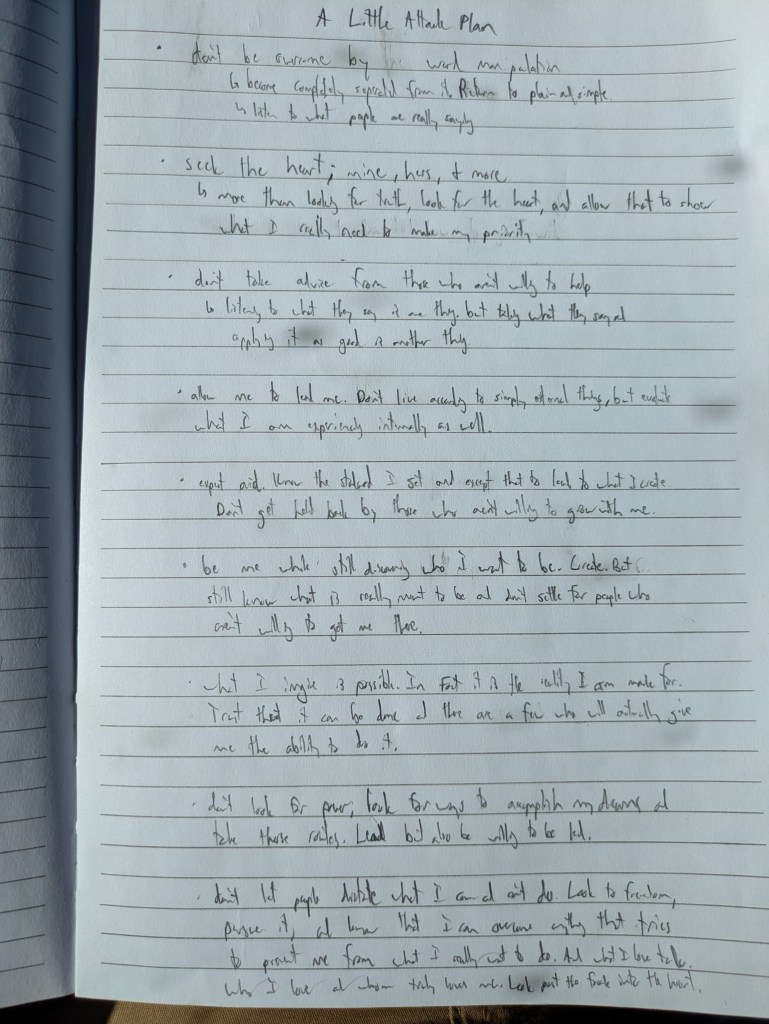 A Little Attack Plan
• don't be overcome by word manipulation
↳ become completely separated from it. Return to plain and simple.
↳ listen to what people are really saying
• seek the heart; mine, hers, & more
↳ more than looking for truth, look for the heart, and allow that to show
what I really need to make my priority
• don't take advice from those who aren't willing to help
↳ listening to what they say is one thing, but taking what they say and
applying it as good is another thing
• allow me to lead me. Don't live according to simply external things, but evaluate
what I am experiencing internally as well.
• expect aid. Know the standard I set and expect that to lead to what I create
Don't get held back by those who aren't willing to grow with me.
• be me while still discovering who I want to be. Create. But
still know what is really meant to be and don't settle for people who
aren't willing to get me there.
• what I imagine is possible. In fact it is the reality I am made for.
Trust that it can be done and there are a few who will actually give
me the ability to do it.
• don't look for power, look for ways to accomplish my dreams and
take those routes. Lead but also be willing to be led.
• don't let people dictate what I can and can't do. Look to freedom,
pursue it, and know that I can overcome anything that tries
to prevent me from what I really want to do. And what I love
who I love and whom truly loves me. Look past the into the heart.